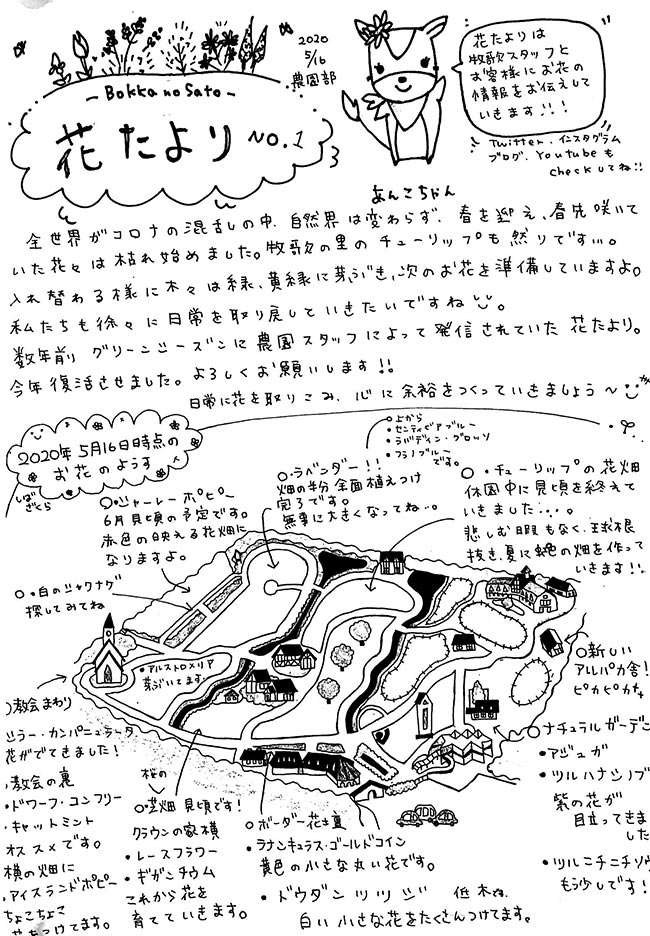 - Bokka no Sato -
花たより NO.1
2020
5/16
農園部
花たよりは
牧歌スタッフと
お客様にお花の
情報をお伝えして
いきます!!!
Twitter・インスタグラム
ブログ、Youtubeも
checkしてね!!
あんこちゃん
全世界がコロナの混乱の中、自然界は変わらず、春を迎え、春先咲いて
いた花々は枯れ始めました。牧歌の里のチューリップも然りです…。
入れ替わる様に木々は緑、黄緑に芽ぶき、次のお花を準備していますよ。
私たちも徐々に日常を取り戻していきたいですね。
数年前グリーンシーズンに農園スタッフによって発信されていた花たより。
今年復活させました。よろしくお願いします!!
日常に花を取りこみ、心に余裕をつくっていきましょう~
2020年5月16日時点の
お花のようす
しばざくら
○・シャーレーポピー
6月見頃の予定です。
赤色の映える花畑に
なりますよ。
○・ラベンダー!!
畑の半分全面植えつけ
完了です。
無事に大きくなってね…。
上から
・センティビアブルー
・ラバディン・グロッソ
・フラノブルー
です。
○・チューリップの花畑
休園中に見頃を終えて
いきました…。
悲しむ暇もなく、球根
抜き、夏に
の畑を作って
いきます!!
○・白のシャクナゲ
探してみてね
・アルストロメリア
芽ぶいてます
○新しい
アルパカ舎!
ピカピカだよ
○教会まわり
シラー・カンパニュラータ
花がでてきました!
○教会の裏
・ドワーフ・コンフリー
・キャットミント
オススメです。
横の畑に
・アイスランドポピー
ちょこちょこ
花をつけてます。
桜の
○芝畑 見頃です!
クラウンの家横
・レースフラワー
・ギガンチウム
これから花を
育てていきます。
○ボーダー花壇
ラナンキュラス・ゴールドコイン
黄色の小さな丸い花です。
・ドウダンツツジ 低木で、
白い小さな花をたくさんつけてます。
○ナチュラルガーデン
・アジュガ
・ツルハナシノブ
紫の花が
目立ってきま
した
・ツルニチニチソウ
もう少しです!